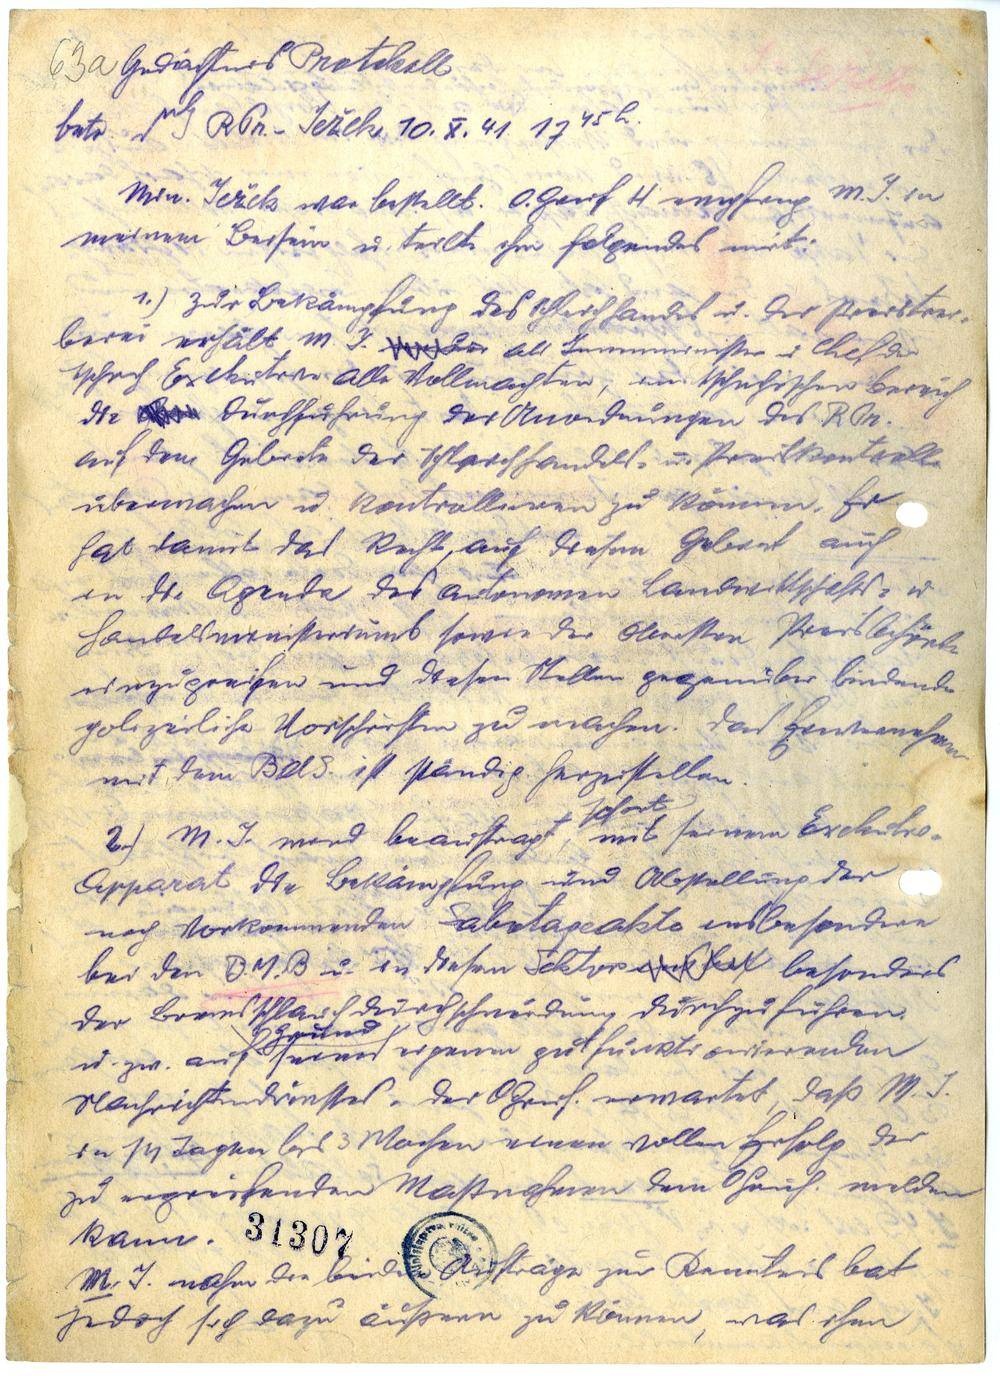 63a Gedächtnis Protokoll
betr. RPr. - Ježek 10. X. 41 17 45 h.
Min. Ježek war bestellt. O.Gruf H empfing M. J. in
meinem Beisein u. teilte ihm folgendes mit:
1.) Zur Bekämpfung des Schleichhandels u. der Preistrei-
berei erhält M. J. als Innenminister u Chef der
tschech Exekutive alle Vollmachten, im tschechischen Bereich
die Durchführung der Anordnungen des RPr.
auf dem Gebiete der Schleichhandels- u. Preiskontrolle
überwachen u. kontrollieren zu können. Er
hat damit das Recht, auf diesem Gebiet auch
in die Agenda des autonomen Landwirtschafts- u
Handelsministeriums sowie der Obersten Preisbehörde
einzugreifen und diesen Stellen gegenüber bindende
polizeiliche Vorschriften zu machen. Das Einvernehmen
mit dem BdS. ist ständig herzustellen.
2.) M. J. wird beauftragt, sofort mit seinem Exekutiv-
Apparat die Bekämpfung und Abstellung der
noch vorkommenden Sabotageakte insbesondere
bei den B.M.B u. in diesem Sektor besonders
der Bremsschlauchdurchschneidung durchzuführen.
u. zw. auf Grund seines eigenen gut funktionierenden
Nachrichtendienstes. Der OGruf. erwartet, daß M. J.
in 14 Tagen bis 3 Wochen einen vollen Erfolg der
zu ergreifenden Maßnahmen dem OGruf. melden
kann.
31307
M. J. nahm die beiden Aufträge zur Kenntnis bat
jedoch sich dazu äußern zu können, was ihm